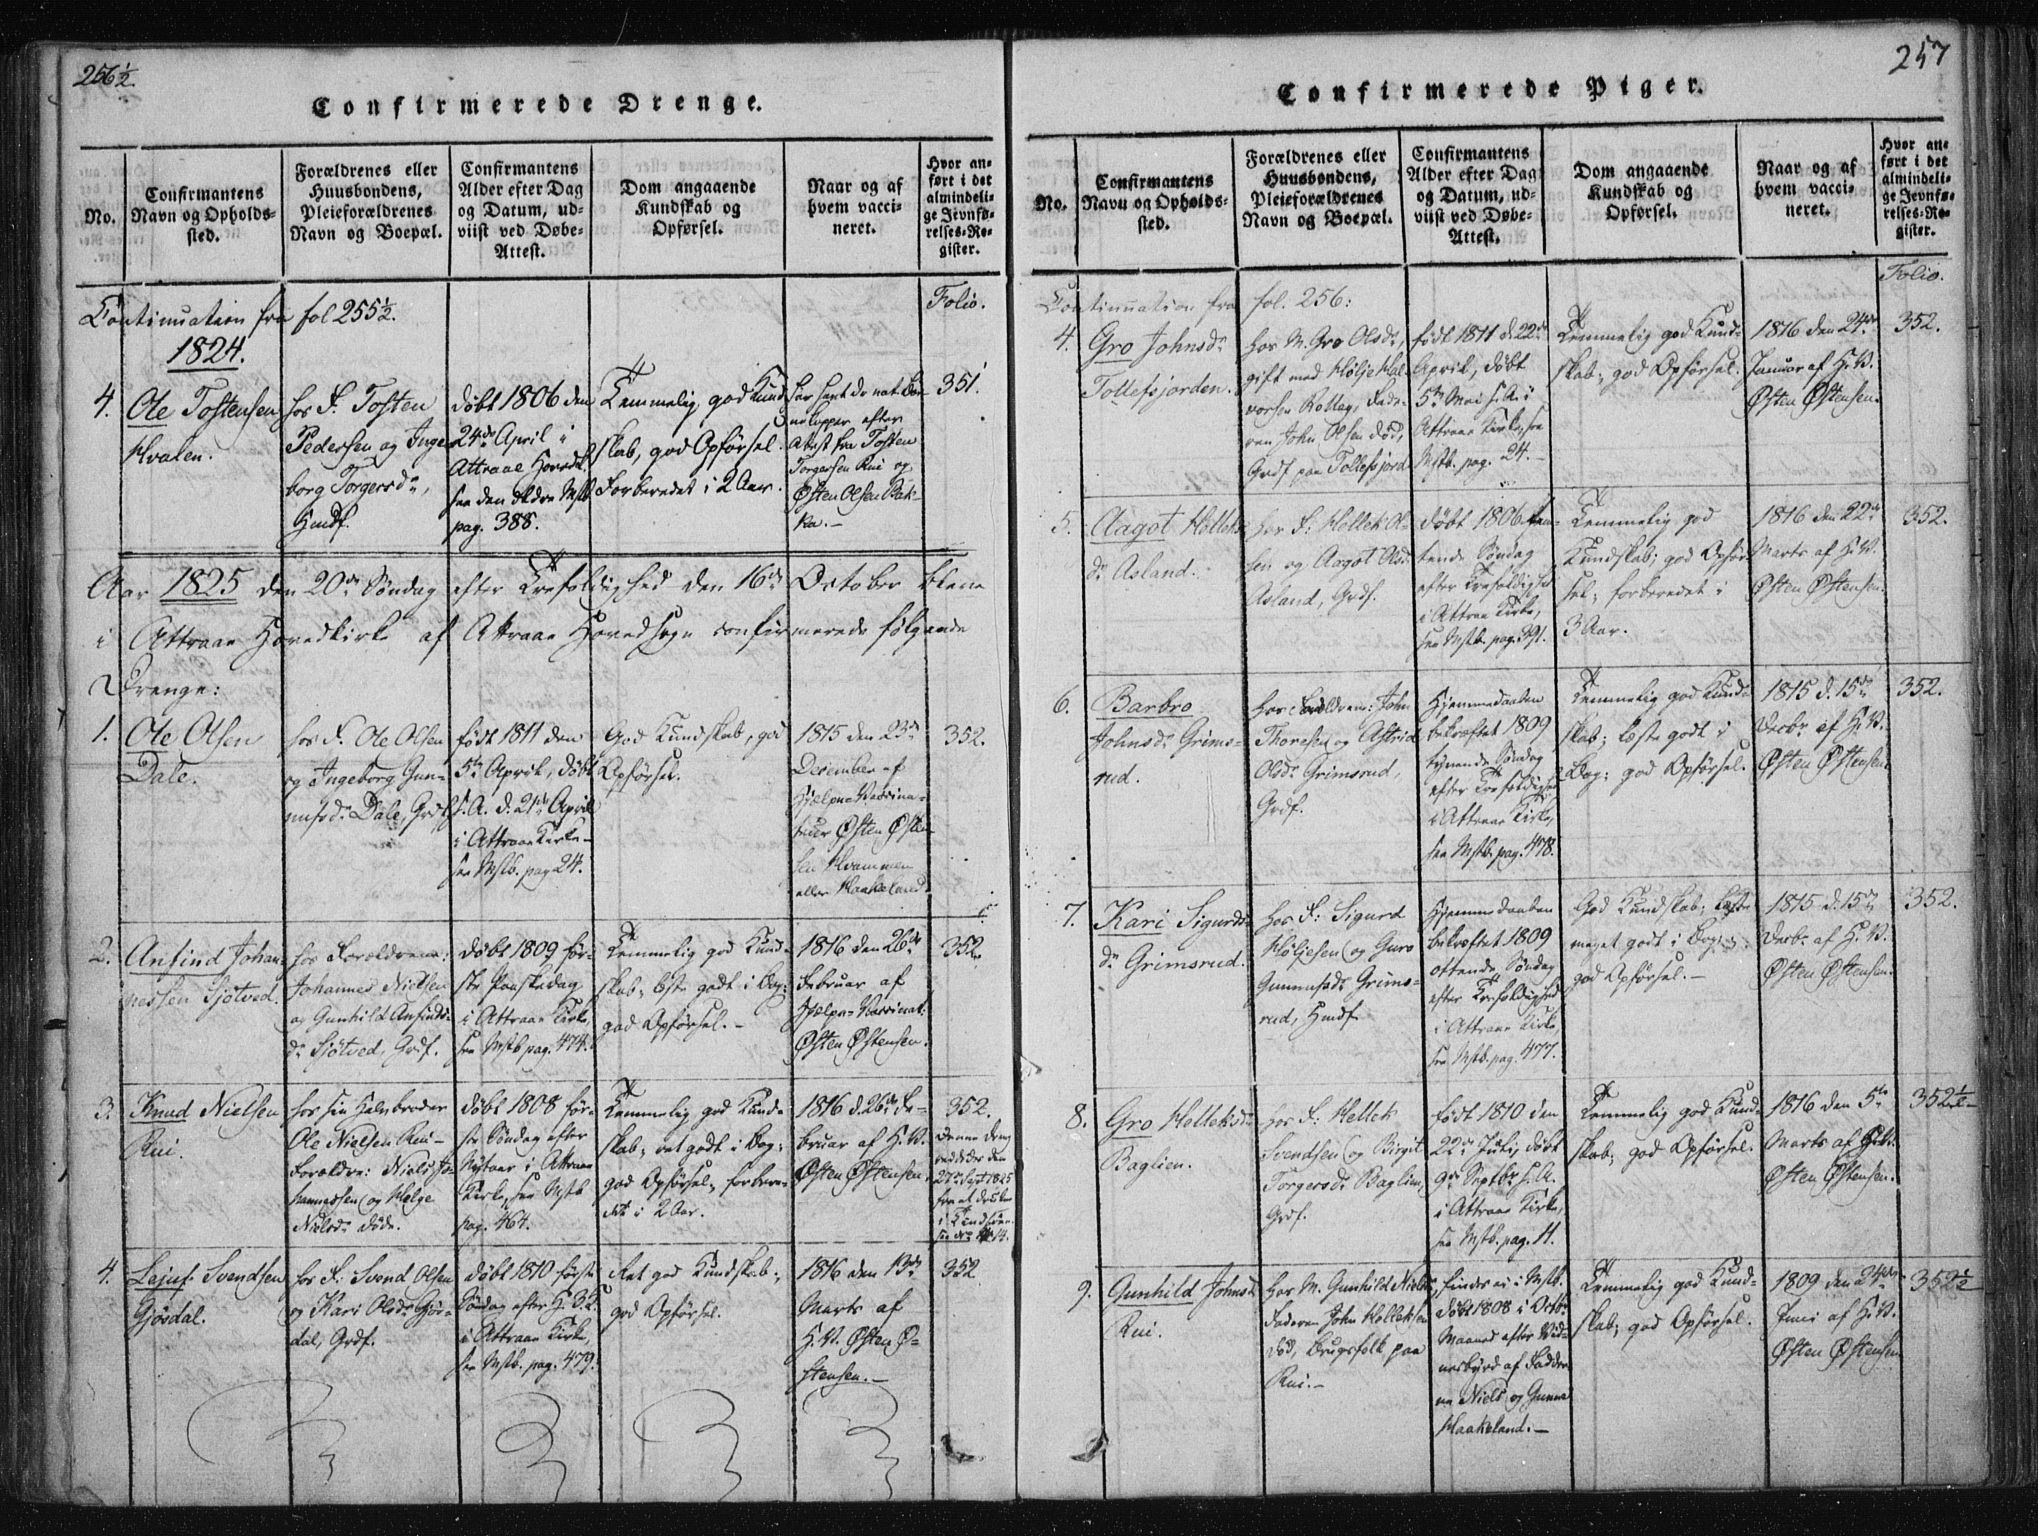 256 1/2
Confirmerede Drenge.
No.
Confirmantens
Navn og Opholds-
sted.
Forældrenes eller
Huusbondens,
Pleieforældrenes
Navn og Boepæl.
Confirmantens
Alder efter Dag
og Datum, ud-
viist ved Døbe-
Attest.
Dom angaaende
Kundskab og
Opførsel.
Naar og af
hvem vacci-
neret.
Hvor an-
ført i det
almindeli-
ge Jevnfø-
relses-Re-
gister.
Folio.
Continuation fra fol 255 1/2.
1824.
4.
Ole Tostensen
Hvalen.
hos F. Tosten
Pedersen og Inge-
borg Torgersdr,
Hmdf.
døbt 1806 den
24de April i
Attraae Hovedk.
see den ældre Mstb
pag. 388.
Temmelig god Kund-
skab, god Opførsel.
Forberedet i 2 Aar.
efter
Attest fra Tosten
Torgersen Rui og
Østen Olsen Bak-
ka.-
351.
Aar 1825 den 20de Søndag efter Trefoldighed den 16de October bleve
i Attraae Hovedkirke af Attraae Hovedsogn confirmerede følgende
Drenge:
1.
Ole Olsen
Dale.
hos F. Ole Olsen
og Ingeborg Gun-
nufsdr Dale, Grdf.
født 1811 den
5te April, døbt
s. A. d. 21de April
i Attraae Kirke-
see Mstb. pag 24.
God Kundskab, god
Opførsel.
1815 den 23de
December af
Hjælpe-Vaccina-
teur Østen Østen-
sen Hvammen
eller Haakeland.
352.
2.
Anfind Johan-
nessen Sjøtved.
hos Forældrene:
Johannes Nielsen
og Gunhild Anfinds-
dr Sjøtved, Grdf.
døbt 1809 før-
ste Paaskedag
i Attraae Kirke,
see Mstb pag. 474.
Temmelig god Kund-
skab; læste godt i Bog;
god Opførsel.-
1816 den 26de
Februar af
Hjælpe-Vaccinat:
Østen Østensen.
352.
3.
Knud Nielsen
Rui.
hos sin Halvbroder
Ole Nielsen Rui-
Forældre: Niels Jo-
hannessen og Helge
Nielsdr døde.
døbt 1808 før-
ste Søndag efter
Nytaar i Attraae
Kirke, see Mstb
pag. 464.
Temmelig god Kund-
skab; ret godt i Bog;
god Opførsel; forbere-
det i 2 Aar.
1816 d. 26de Fe-
bruar af H.V.
Østen Østensen.
352.
Denne Dreng
døde den
27de Sept 1825
ved at drukne
i Tindsøen
see No 14.
4.
Lejuf Svendsen
Gjøsdal.
hos F. Svend Olsen
og Kari Olsdr Gjøs-
dal, Grdf.
døbt 1810 første
Søndag efter H. 3 K.
i Attraae Kirke,
see Mstb. pag. 479.
Ret god Kundskab;
god Opførsel.
1816 den 13de
Marts af
H.V. Østen Ø-
stensen.-
352
257
Confirmerede Piger.
No.
Confirmantens
Navn og Opholds-
sted.
Forældrenes eller
Huusbondens,
Pleieforældrenes
Navn og Boepæl.
Confirmantens
Alder efter Dag
og Datum, ud-
viist ved Døbe-
Attest.
Dom angaaende
Kundskab og
Opførsel.
Naar og af
hvem vacci-
neret.
Hvor an-
ført i det
almindeli-
ge Jevnfø-
relses-Re-
gister.
Folio.
Continuation fra fol. 256:
4.
Gro Johnsdr
Tollefsjorden.
hos M. Gro Olsdr,
gift med Høljehal-
vorsen Rollag, Fade-
ren John Olsen død,
Grdf paa Tollefsjord
født 1811 d. 22de
April, døbt
5te Mai s. A. i
Attraae Kirke, see
Mstb. pag. 24.-
Temmelig god Kund-
skab; god Opførsel.
1816 den 24de
Januar af H.V.
Østen Østensen.
352.
5.
Aagot Helleks-
dr Aasland.
hos F: Hellek Ol-
sen og Aagot Olsdr
Aasland, Grdf.
døbt 1806 fem-
tende Søndag
efter Trefoldighed
i Attraae Kirke,
see Mstb. pag. 391.
Temmelig god
Kundskab; god Opfør-
sel; forberedet i
3 Aar.
1816 den 22de
Marts af H.V.
Østen Østensen.
352.
6.
Barbro
Johnsdr Grims-
rud.
hos Forældrene: John
Thoresen og Astrid
Olsdr Grimsrud,
Grdf.
Hjemmedaaben
bekræftet 1809
tyvende Søndag
efter Trefoldighed
i Attraae Kirke,
see Mstb. pag. 478.
Temmelig god Kund-
skab; læste godt i
Bog; god Opførsel.
1815 d. 15de
Decbr. af H.V.
Østen Østensen.
352.
7.
Kari Sigurds-
dr Grimsrud.
hos F: Sigurd
Høljesen og Guro
Gunnufsdr Grims-
rud, Hmdf.
Hjemmedaaben
bekræftet 1809
ottende Søndag
efter Trefoldighed
i Attraae Kirke,
see Mstb. pag. 477.
God Kundskab; læste
meget godt i Bog;
god Opførsel.-
1815 d. 15de
Decbr. af H.V.
Østen Østensen.
352.
8.
Gro Helleksdr
Baglien.
hos F: Hellek
Svendsen og Birgit
Torgersdr Baglien,
Grdf.
født 1810 den
22de Juli, døbt
9de Septbr s. A.
i Attraae Kirke,
see Mstb. pag. 11.
Temmelig god Kund-
skab; god Opførsel.
1816 den 5te
Marts af H.V.
Østen Østensen.
352 1/2
9.
Gunhild Johnsdr
Rui.
hos M. Gunhild Nielsdr,
Faderen John Helleksen
død, Brugsfolk paa
Rui.-
findes ei i Mstb.
døbt 1808 i Octbr.
Maaned efter Vid-
nesbyrd af Faddere-
ne Niels og Gunne
Haakeland.-
Temmelig god Kund-
skab; god Opførsel.
1809 den 24de
Juni af H.V.
Østen Østensen
352 1/2